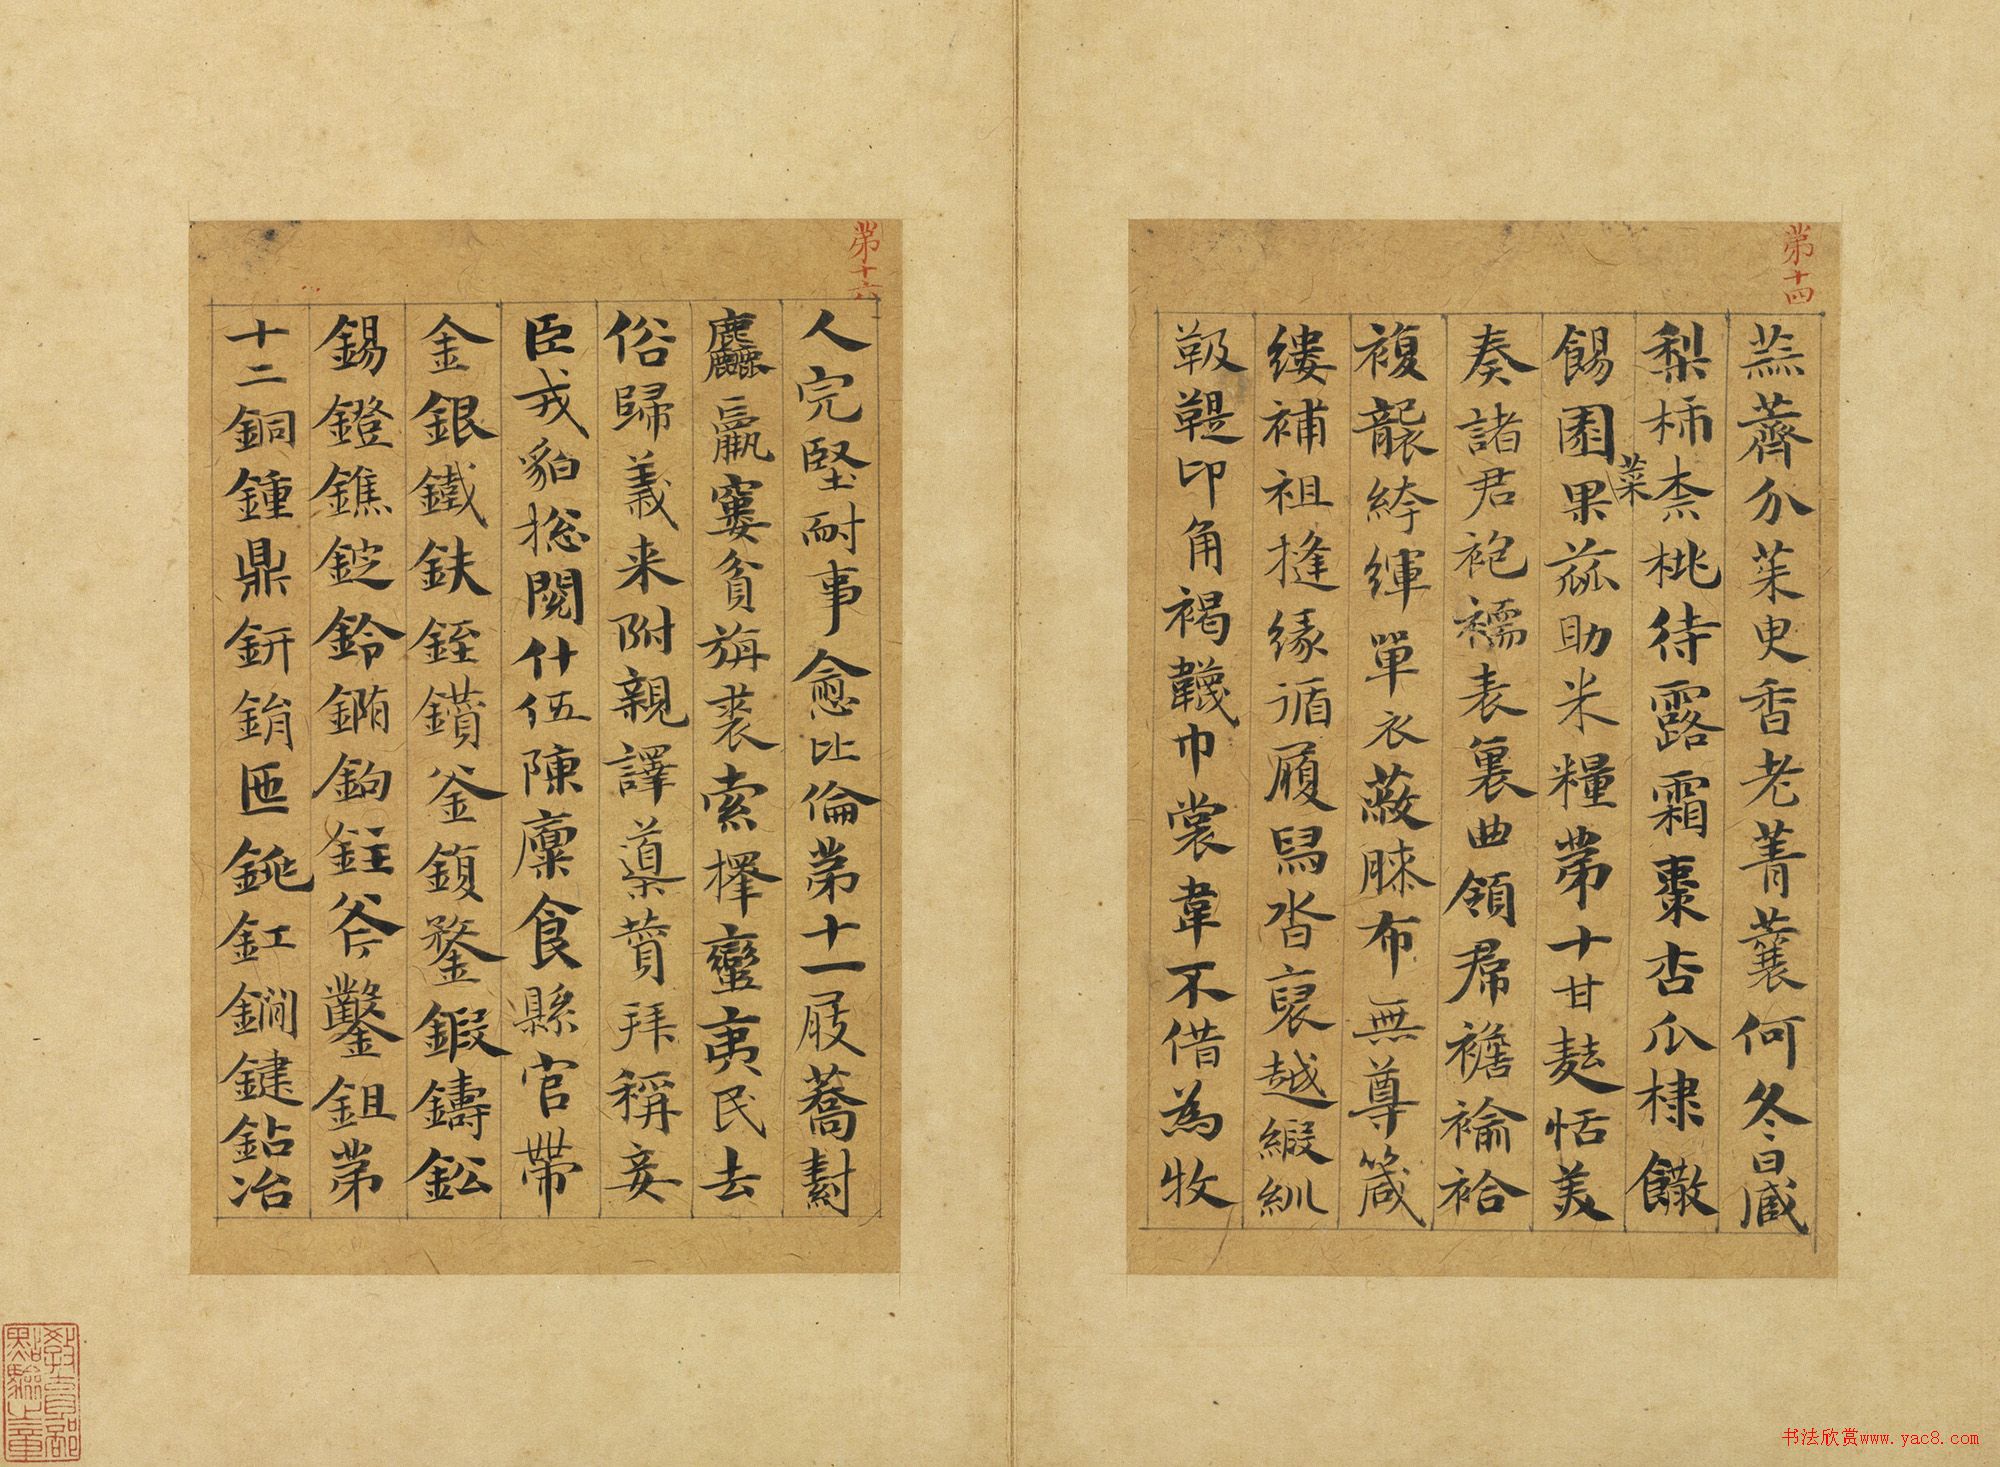 第十四
蕪薺介茱臾香老菁蘘何冬日臧
梨柿柰桃待露霜棗杏瓜棣饊
菜
餳園果蓏助米糧第十甘麩恬美
奏諸君袍襦表裏曲領帬襜褕袷
複襲絝緷單衣蔽膝布無尊箴
縷補袒縫緣循履舄沓裒越緞紃
靸鞮卬角褐韤巾裳韋不借為牧
第十六
人完堅耐事愈比倫第十一屐蕎䵽
麤羸窶貧旃裘索擇蠻夷民去
俗歸義来附親譯導賛拜稱妾
臣戎貊総閲什伍陳廩食縣官帶
金銀鐵鈇銍鑽釜鍑鍪鍛鑄鈆
錫鐙鐎錠鈴鏅鉤銍斧鑿鉏第
十二銅鍾鼎鈃鋗匜銚釭鐧鍵鉆冶
教育部點驗之章
书法欣赏www.yac8.com